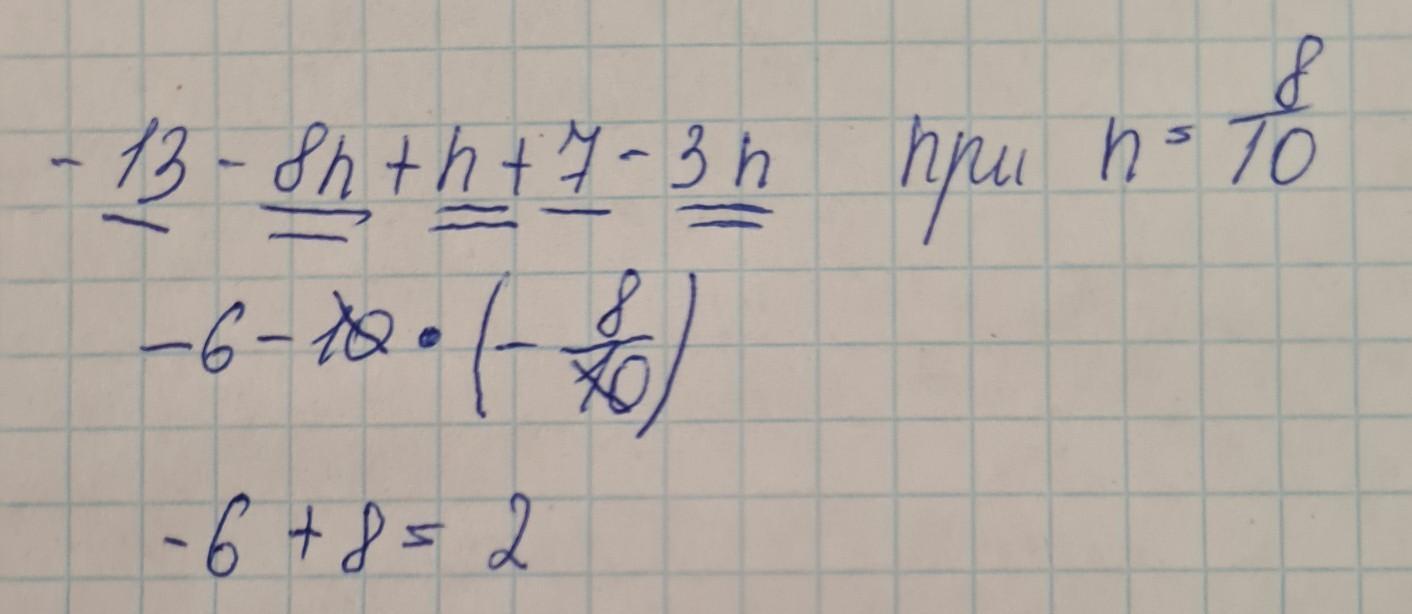 -13 - 8n + n + 7 - 3n при n = 8/10
-6 - 10 • (- 8/10)
-6 + 8 = 2